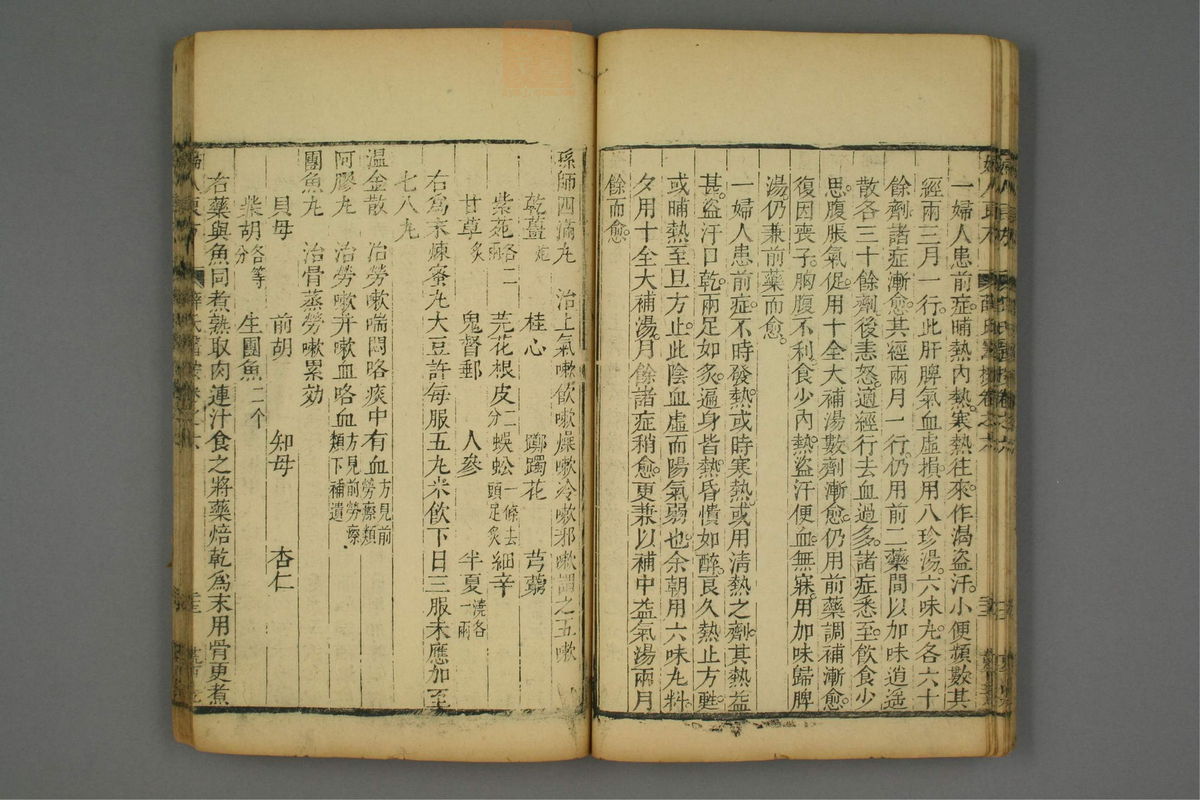 一婦人患前症。晡熱內熱。寒熱往來。作渴盜汗。小便頻數其
經兩三月一行。此肝脾氣血虛損。用八珍湯。六味丸。各六十
餘劑。諸症漸愈。其經兩月一行。仍用前二藥間以加味逍遙
散各三十餘劑。後恚怒。適經行去血過多。諸症悉至。飲食少
思。腹脹氣促。用十全大補湯數劑漸愈。仍用前藥調補漸愈。
復因喪子。胸腹不利。食少內熱。盜汗便血。無寐。用加味歸脾
湯。仍兼前藥而愈。
一婦人患前症。不時發熱。或時寒熱。或用清熱之劑。其熱益
甚。盜汗口乾。兩足如炙。遍身皆熱。昏憒如醉。良久熱止方甦。
或晡熱至旦方止。此陰血虛而陽氣弱也。余朝用六味丸料。
夕用十全大補湯。月餘諸症稍愈。更兼以補中益氣湯兩月
餘而愈。
孫師四滿丸 治上氣嗽飲嗽燥嗽冷嗽邪嗽謂之五嗽
乾薑炮 桂心 躑躅花 芎藭
紫菀各二兩 芫花根皮二分 蜈蚣一條去頭足炙 細辛
甘草炙 鬼督郵 人參 半夏澆各一兩
右為末煉蜜丸大豆許每服五丸米飲下日三服未應加至
七八丸
溫金散 治勞嗽喘悶咯痰中有血方見前勞瘵類
阿膠丸 治勞嗽并嗽血咯血方見前勞瘵類下補遺
團魚丸 治骨蒸勞嗽累効
貝母 前胡 知母 杏仁
柴胡各等分 生團魚二个
右藥與魚同煮熟取肉連汁食之將藥焙乾為末用骨更煮